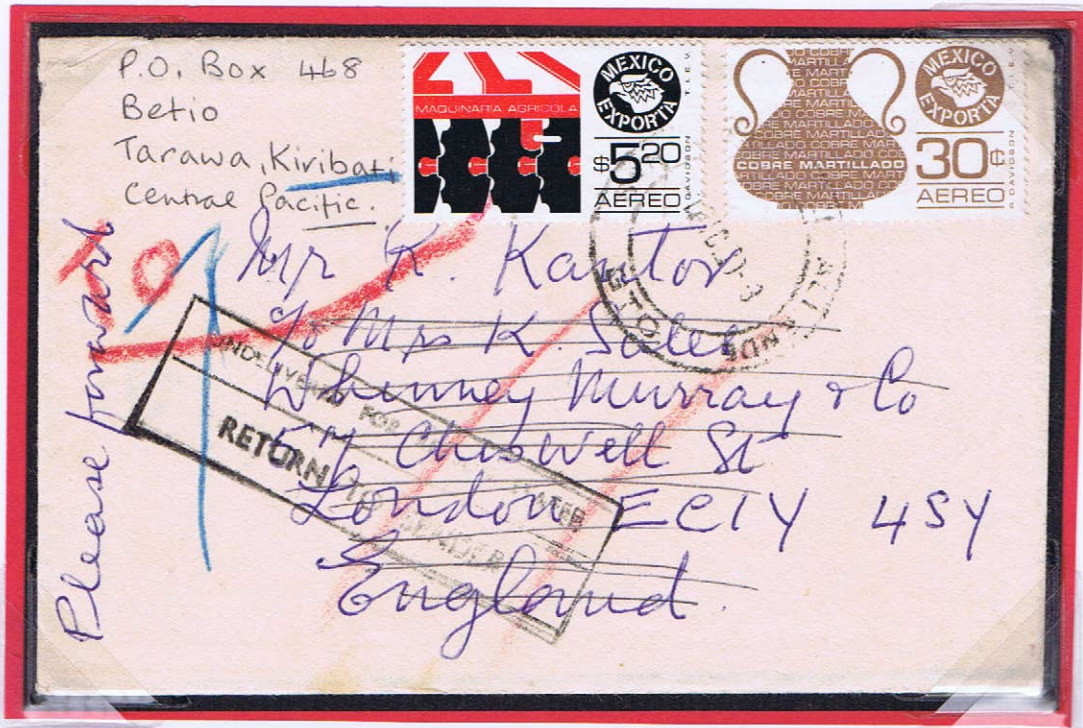 P.O. Box 468
Betio
Tarawa, Kiribati
Central Pacific.
MAQUINARIA AGRICOLA
MEXICO EXPORTA
$5.20
AEREO
T.I.E.V.
DAVIDSON
COBRE MARTILLADO
MEXICO EXPORTA
30¢
AEREO
T.I.E.V.
R. DAVIDSON
Please forward
Mr K. Kantor
c/o Mrs K. Sales
Whinney Murray & Co
57 Chiswell St
London EC1Y 4SY
England.
UNDELIVERED FOR REASON STATED
RETURN TO SENDER